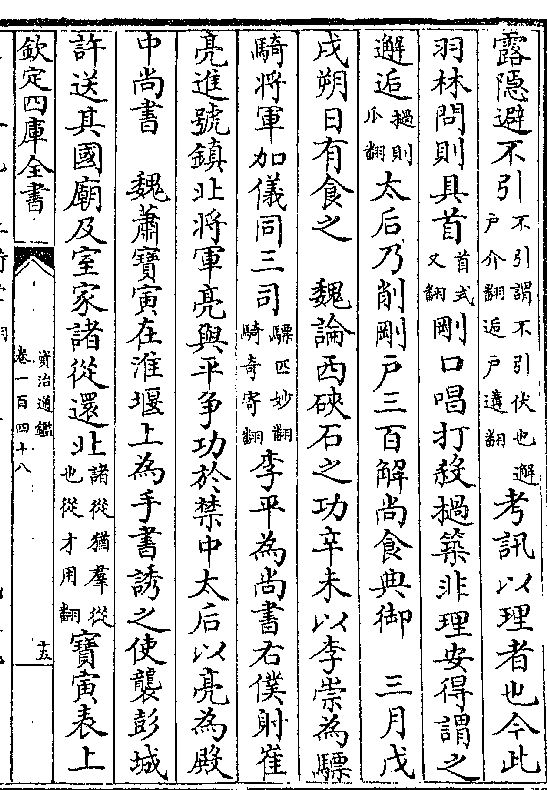 露隱避不引不引謂不引伏也邂戶介翻逅戶遘翻考訊以理者也今此
羽林問則具首首式又翻剛口唱打殺撾築非理安得謂之
邂逅撾則爪翻太后乃削剛戶三百解尚食典御　三月戊
戌朔日有食之　魏論西硤石之功辛未以李崇為驃
騎將軍加儀同三司驃匹妙翻騎奇寄翻李平為尚書右僕射崔
亮進號鎮北將軍亮與平爭功於禁中太后以亮為殿
中尚書　魏蕭寶寅在淮堰上為手書誘之使襲彭城
許送其國廟及室家諸從還北諸從猶羣從也從才用翻寶寅表上
欽定四庫全書
資治通鑑
卷一百四十八
十五